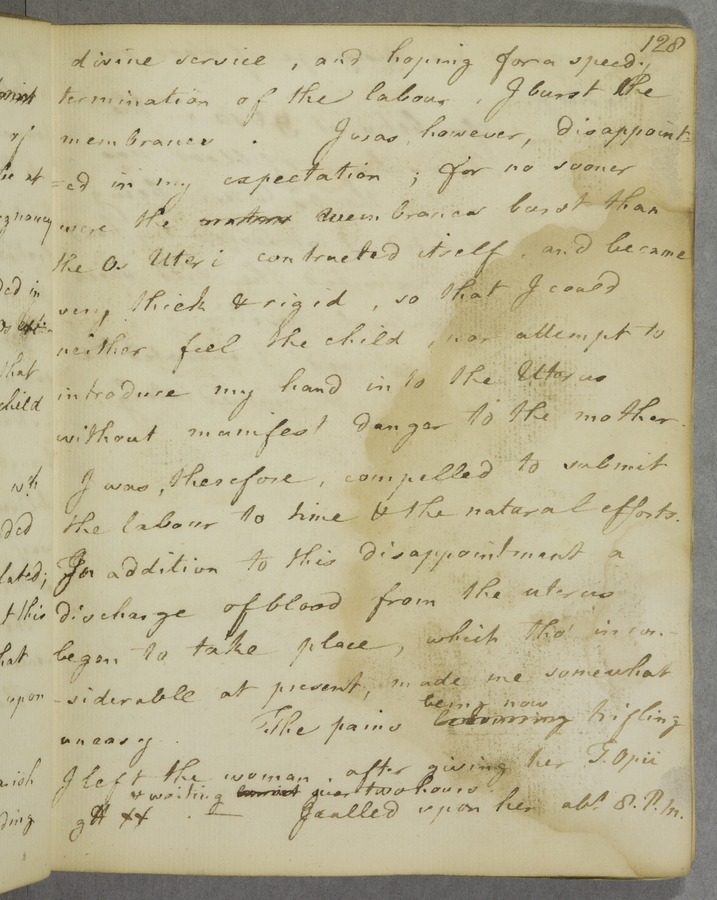 128
divine service, and hoping for a speedy
termination of the labour, I burst the
membranes. I was, however, disappoint-
=ed in my expectation; for no sooner
were the membranes burst than
the Os Uteri contracted itself, and became
very thick & rigid, so that I could
neither feel the child, nor attempt to
introduce my hand into the Uterus
without manifest danger to the mother.
I was, therefore, compelled to submit
the labour to time & the natural efforts.
In addition to this disappointment a
discharge of blood from the uterus
began to take place, which tho' incon-
-siderable at present, made me somewhat
uneasy. The pains being now trifling
I left the woman, after giving her T. Opii
& waiting over two hours
gtt xx. I called upon her abt 8. P.M.